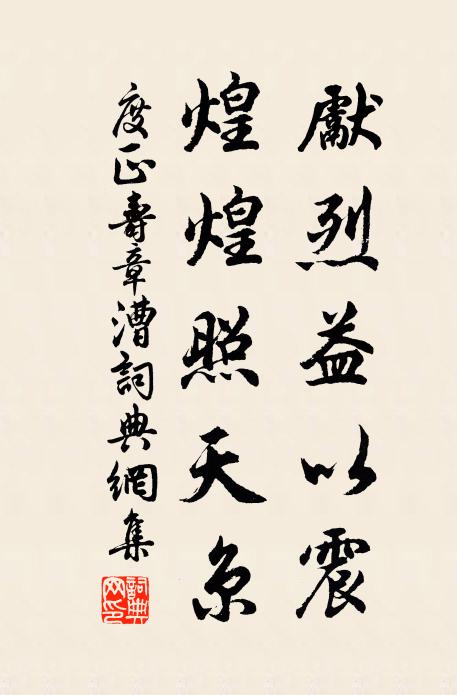 獻烈益以震
煌煌照天京
度正壽章漕詞典網集
詞典网印